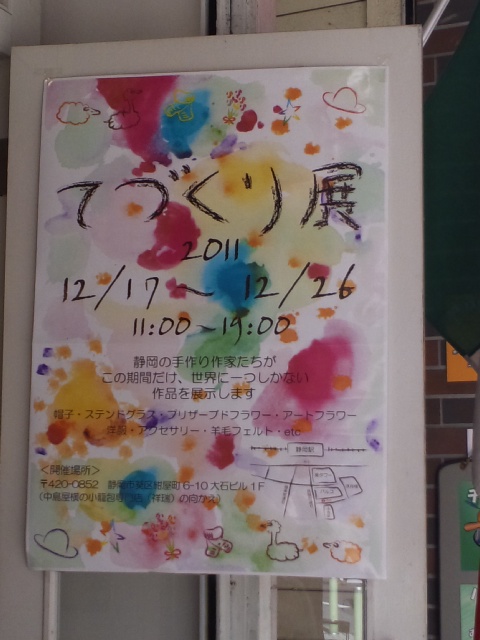 てづくり展
2011
12/17〜12/26
11:00〜19:00
静岡の手作り作家たちが
この期間だけ、世界に一つしかない
作品を展示します
帽子・ステンドグラス・プリザーブドフラワー・アートフラワー
洋服・アクセサリー・羊毛フェルト・etc
静岡駅
＜開催場所＞
〒420-0852 静岡市葵区紺屋町6-10大石ビル1F
の向かえ）